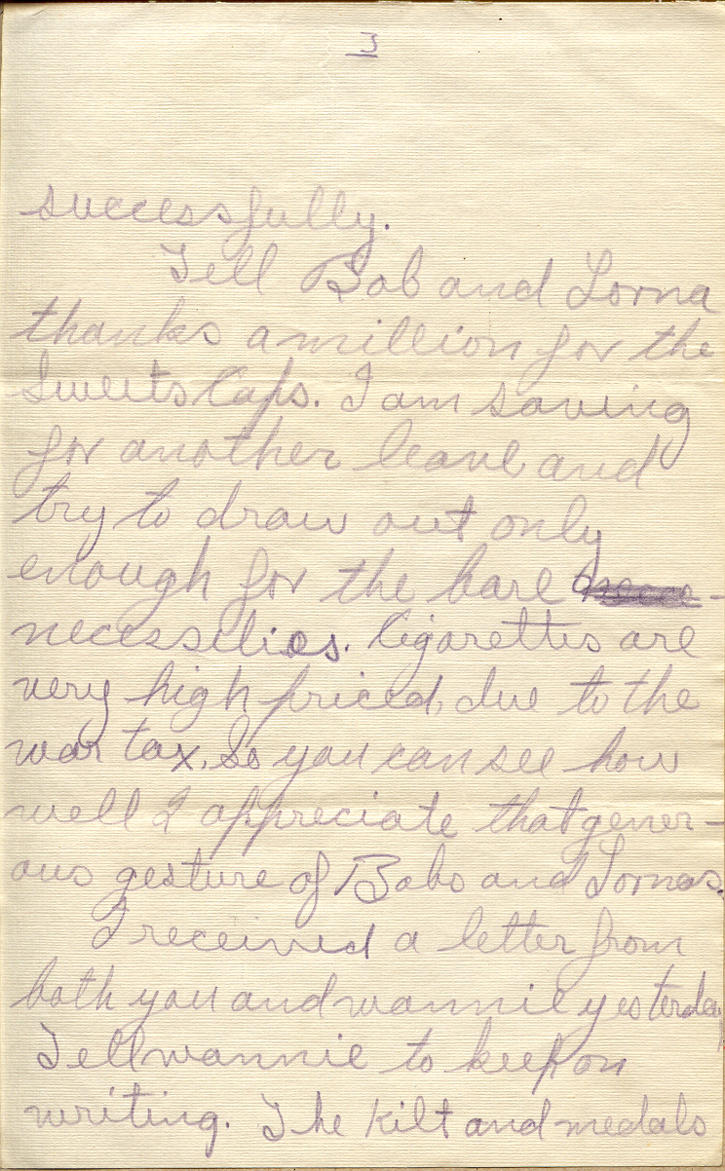 3
successfully.
Tell Bob and Lorna
thanks a million for the
Sweets Caps. I am saving
for another leave and
try to draw out only
enough for the bare
necessities. Cigarettes are
very high priced, due to the
war tax. So you can see how
well I appreciate that gener-
ous gesture of Bobs and Lornas.
I received a letter from
both you and wannie yesterday
Tell wannie to keep on
writing. The kilt and medals